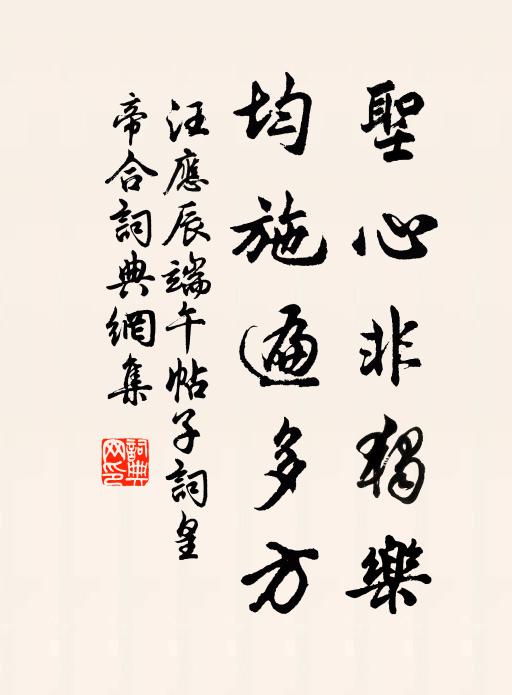 聖心非獨樂
均施遍多方
汪應辰端午帖子詞皇
帝合詞典網集
詞典網印